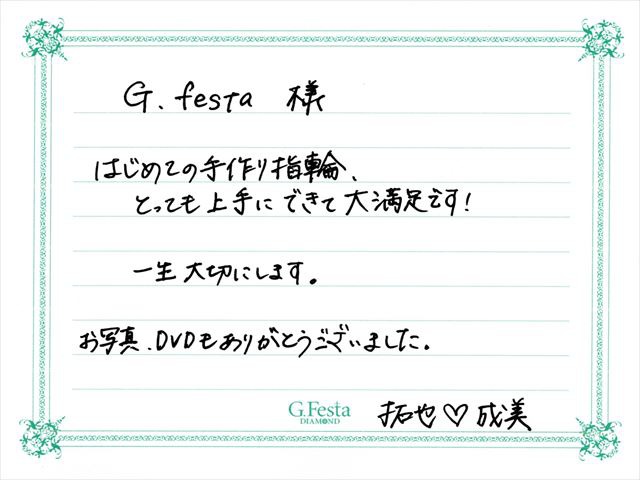 G. festa 様
はじめての手作り指輪、
とっても上手にできて大満足です!
一生大切にします。
お写真、DVDもありがとうございました。
G.Festa
DIAMOND
拓也♡成美